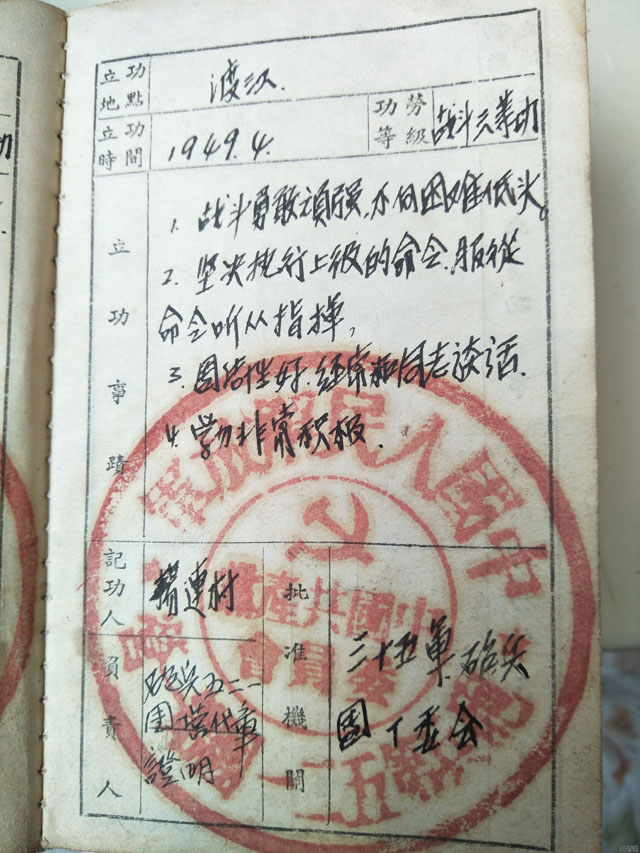 立功地點 渡江
立功時間 1949.4. 功勞等級 战斗三等功
立功事蹟
1. 战斗勇敢頑强，不向困难低头。
2. 坚决执行上级的命令.服從
命令听从指揮，
3. 团结性好.经常和同志談话.
4. 学习非常积极.
記功人 連村
負責人
五二一
团 代軍
證明
批准機關 三十五軍
团 委会
中國人民解放軍
中國共產黨
委員會